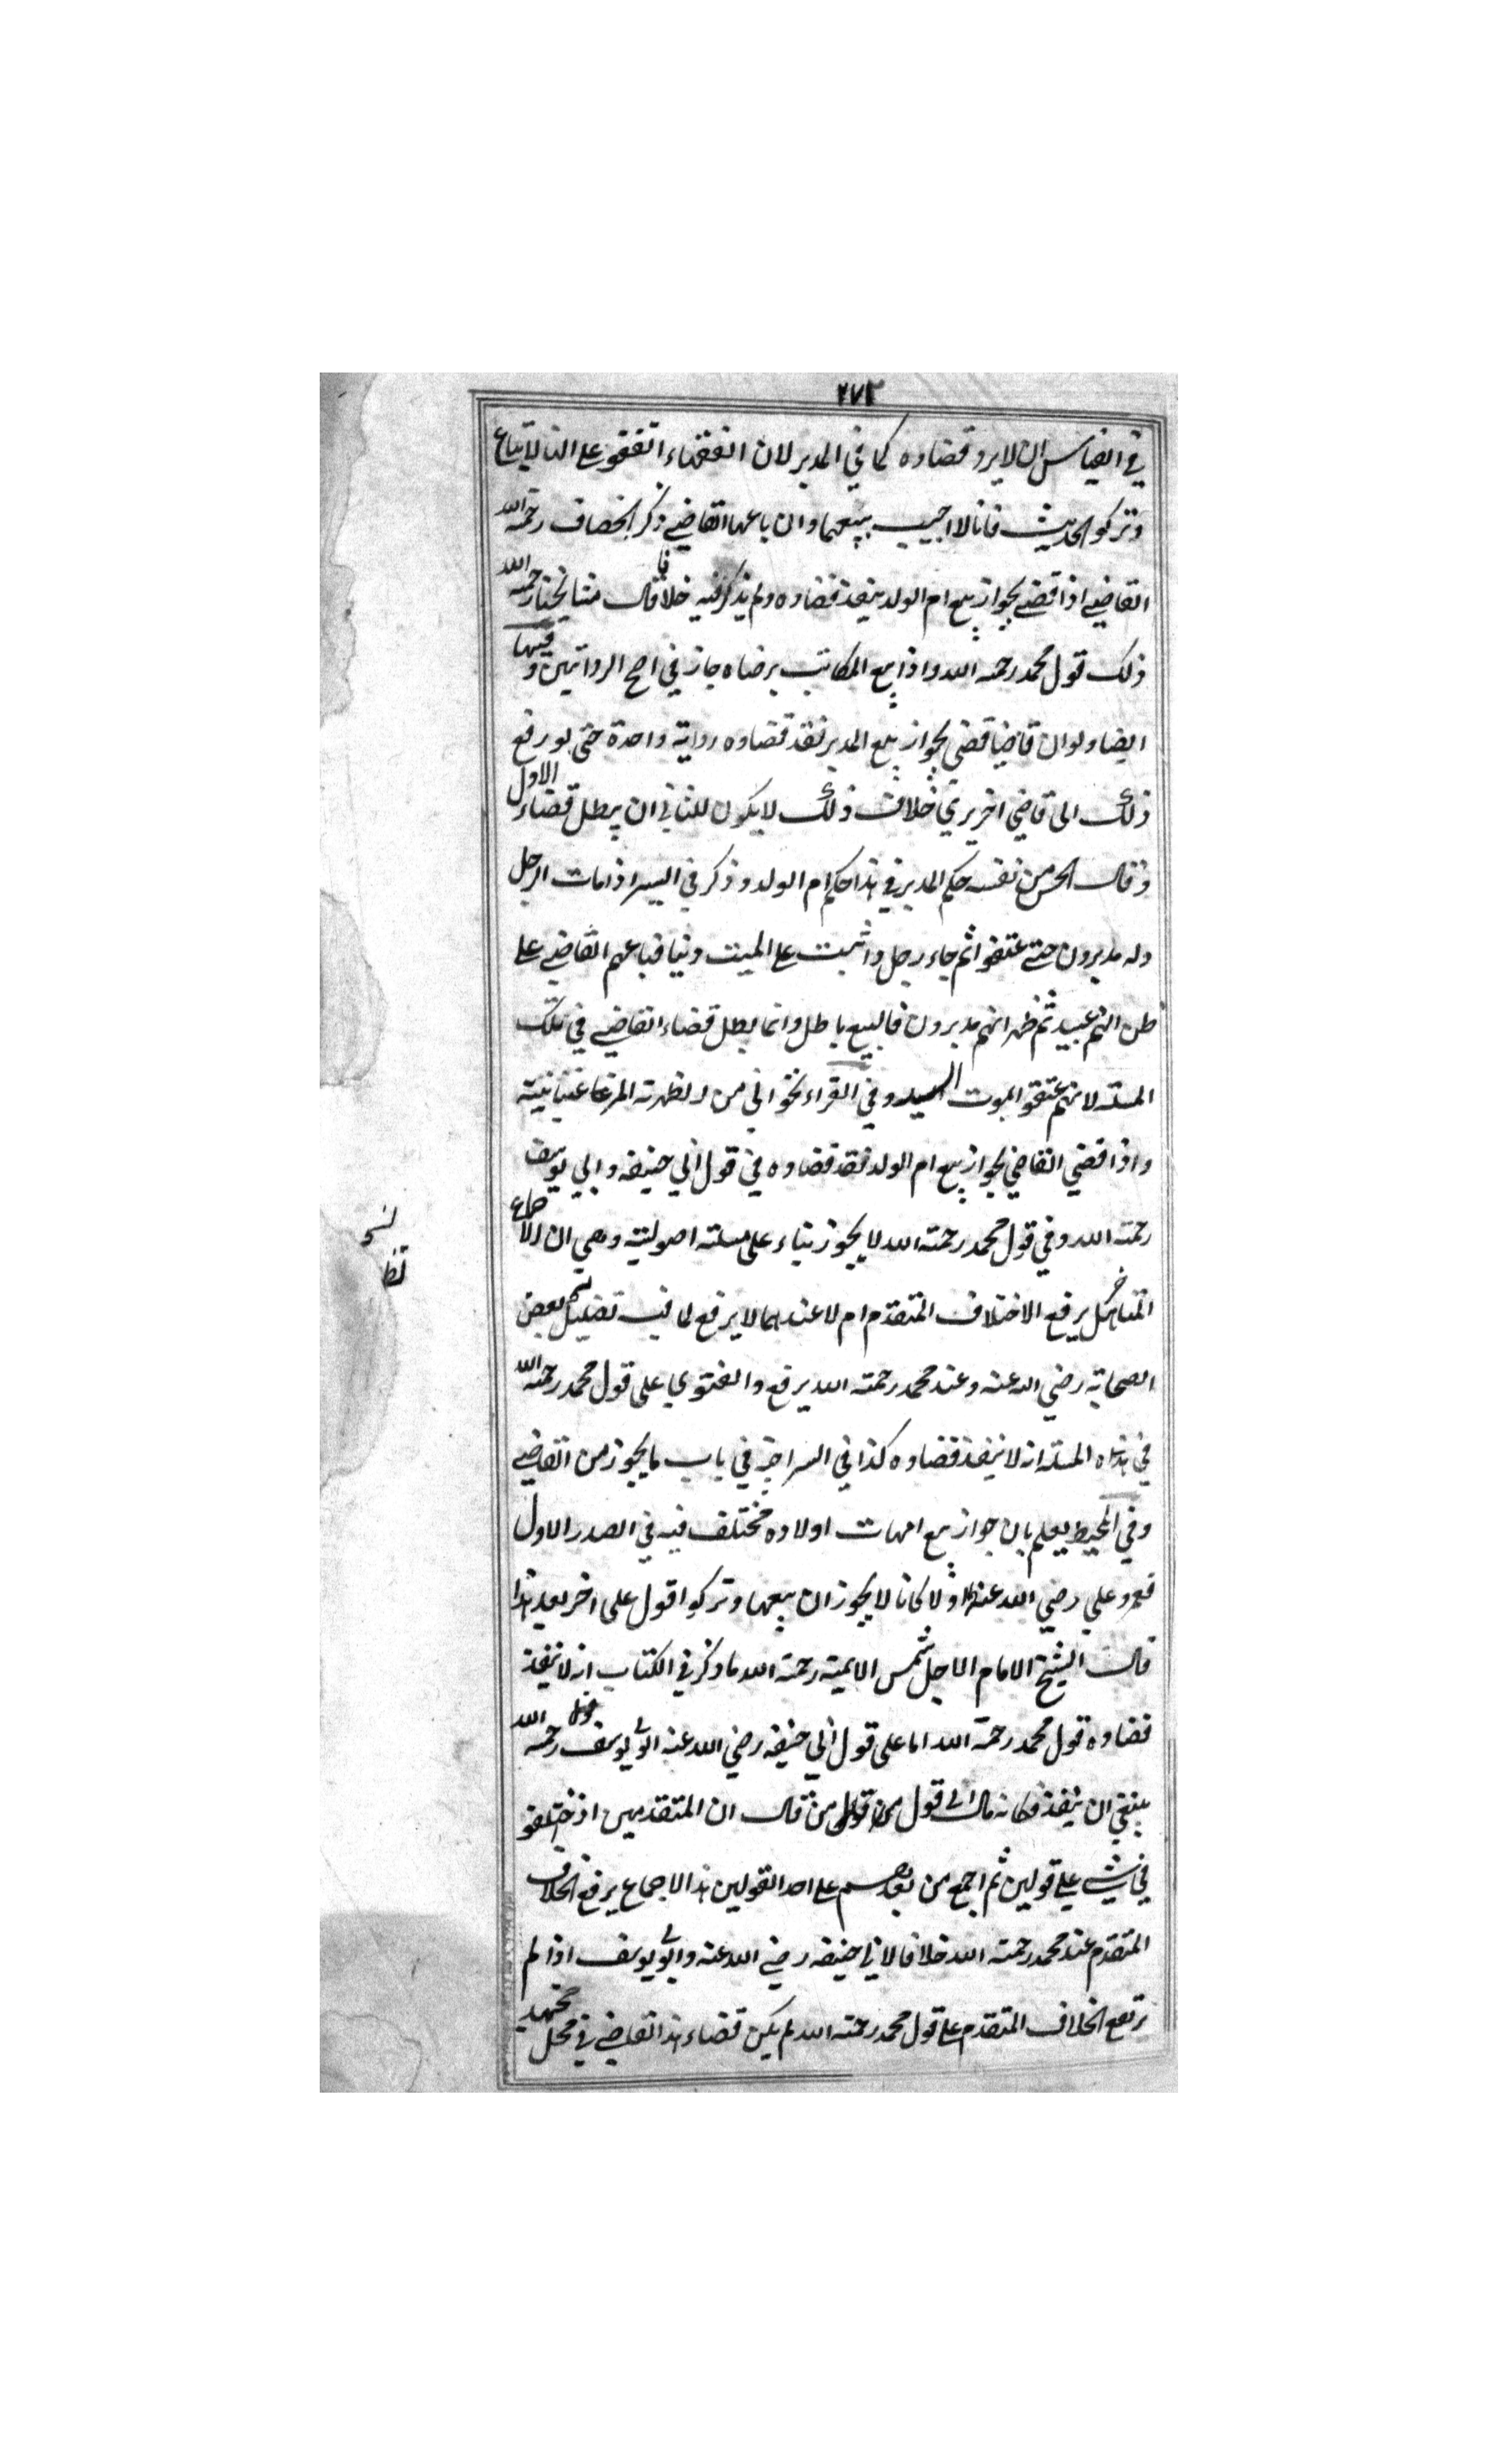 ٢٧٢
في القياس ان لا يرد قضاوه كما في المدبر لان الفقهاء اتفقو على انها لاتباع
وتركو الحديث فانا لا اجيب ببيعها وان باعها القاضي ذكر الخصاف رحمة الله
القاضي اذا قضى بجواز بيع ام الولد ينفذ قضاوه ولم يذكر فيه خلافا قال مشايخنا رحمة الله
ذلك قول محمد رحمة الله واذا بيع المكاتب برضاه جاز في اصح الرواتين وفيها
ايضا ولو ان قاضيا قضى بجواز بيع المدبر نفذ قضاوه رواية واحدة حتى لو رفع
ذلك الى قاضي اخر يري خلاف ذلك لا يكون للثاني ان يبطل قضاء الاول
وقال الحسن من نفسه حكم المدبر في هذا حكم ام الولد وذكر في السير اذا مات الرجل
وله مدبرون حتى عتقوا ثم جاء رجل واثبت على الميت دينا فباعهم القاضي على
ظن انهم عبيد ثم ظهر انهم مدبرون فالبيع باطل وانما بطل قضاء القاضي في تلك
المسئلة لانهم عتقو بموت السيد وفي القراءخواني من
واذا قضي القاضي بجواز بيع ام الولد نفذ قضاوه في قول ابي حنيفه وابي يوسف
رحمة الله وفي قول محمد رحمة الله لا يجوز بناء على مسئلة اصولية وهي ان الاجماع
المتاخر هل يرفع الاختلاف المتقدم ام لا عندهما لا يرفع لما فيه تضليل بعض
الصحابة رضي الله عنه وعند محمد رحمة الله يرفع والفتوي على قول محمد رحمة الله
في هذه المسئلة انه لا ينفذ قضاوه كذا في السراجية في باب ما يجوز من القاضي
وفي المحيط يعلم بان جواز بيع امهات اولاده مختلف فيه في الصدر الاول
فعمر وعلي رضي الله عنهما اولا كانا لا يجوزان بيعها وتركوا قول على اخر بعد هذا
قال الشيخ الامام الاجل شمس الايمة رحمة الله ما ذكر في الكتاب انه لا ينفذ
قضاوه قول محمد رحمة الله اما على قول ابي حنيفه رضي الله عنه ابي يوسف رحمة الله
ينبغي ان ينفذ فكانه مال الى قول من قال ان المتقدمين اذ اختلفو
في شي على قولين ثم اجمع من بعدهم على احد القولين هذا الاجماع يرفع الخلاف
المتقدم عند محمد رحمة الله خلافا لابي حنيفه رضي الله عنه وابي يوسف اذا لم
يرتفع الخلاف المتقدم على قول محمد رحمة الله لم يكن قضاء هذا القاضي في محل مجتهد